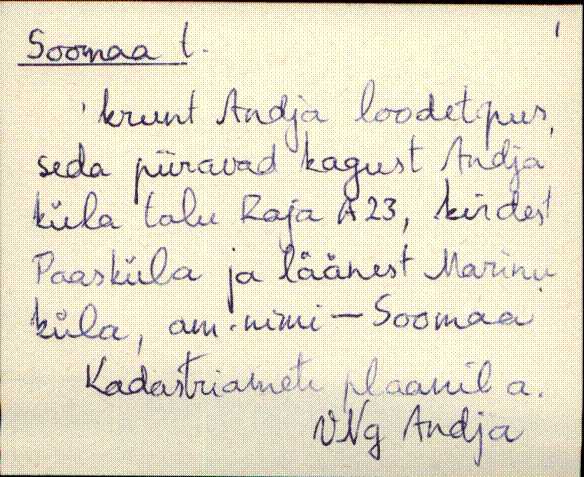 Soomaa t.
krunt Andja loodetipus,
seda piiravad kagust Andja
küla talu Raja A23, kirdest
Paasküla ja läänest Marinu
küla, am. nimi – Soomaa
Kadastriameti plaanil a.
VNg Andja